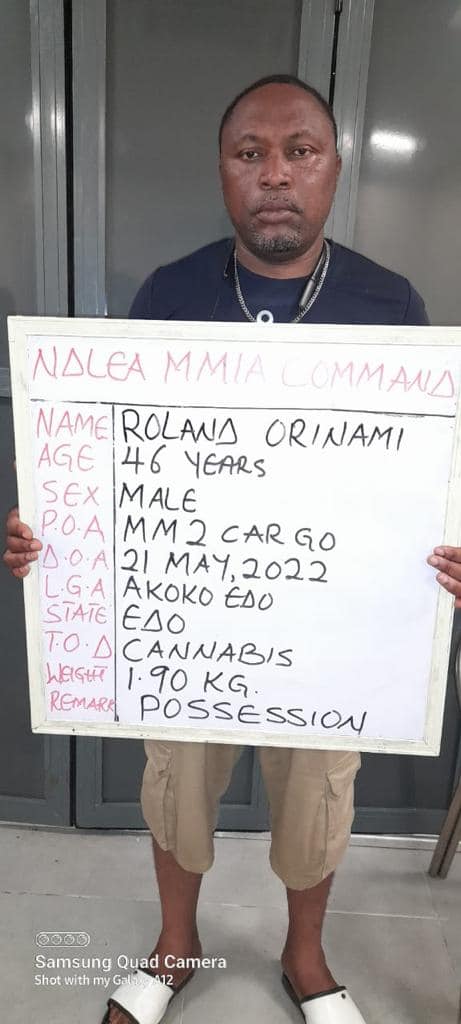 NDLEA MMIA COMMAND
NAME ROLAND ORINAMI
AGE 46 YEARS
SEX MALE
P.O.A MM2 CARGO
D.O.A 21 MAY, 2022
L.G.A AKOKO EDO
STATE EDO
T.O.D CANNABIS
WEIGHT 1.90 KG.
REMARK POSSESSION
Samsung Quad Camera
Shot with my Galaxy A12